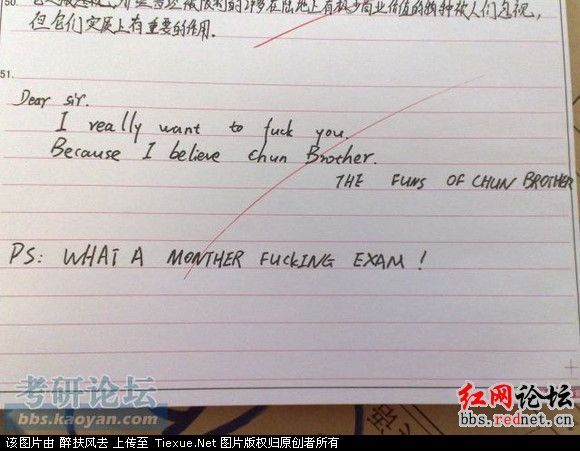 50. 在陆地上有 少商业价值的物种被人们忽视,
但它们实质上有重要的作用.
51.
Dear sir.
I really want to fuck you.
Because I believe chun Brother.
THE FUNS OF CHUN BROTHER
PS: WHAT A MONTHER FUCKING EXAM !
考研论坛
bbs.kaoyan.com
红网论坛
bbs.rednet.cn
该图片由 醉扶风去 上传至 Tiexue.Net 图片版权归原创者所有